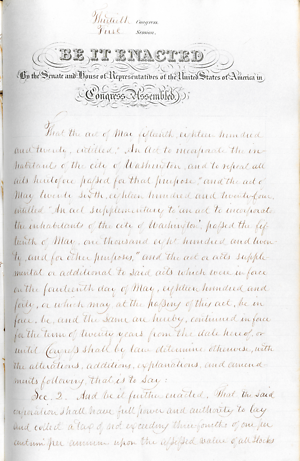 Thirtieth Congress
First Session.
BE IT ENACTED
By the Senate and House of Representatives of the United States of America in
Congress Assembled,
That the act of May fifteenth, eighteen hundred
and twenty, entitled "An Act to incorporate the in-
habitants of the city of Washington, and to repeal all
acts heretofore passed for that purpose," and the act of
May twenty sixth, eighteen hundred and twenty-four,
entitled "An act supplementary to an act to incorporate
the inhabitants of the city of Washington, passed the fif-
teenth of May, one thousand eight hundred, and twen-
ty, and for other purposes," and the act or acts supple-
mental or additional to said acts which were in force
on the fourteenth day of May, eighteen hundred and
forty, or which may at the passing of this act, be in
force, be, and the same are hereby, continued in force
for the term of twenty years from the date hereof, or
until Congress shall by law determine otherwise, with
the alterations, additions, explanations, and amend-
ments following, that is to say:
Sec. 2. And be it further enacted, That the said
corporation shall have full power and authority to lay
and collect a tax of not exceeding three fourths of one per
centum per annum upon the assessed value of all stocks